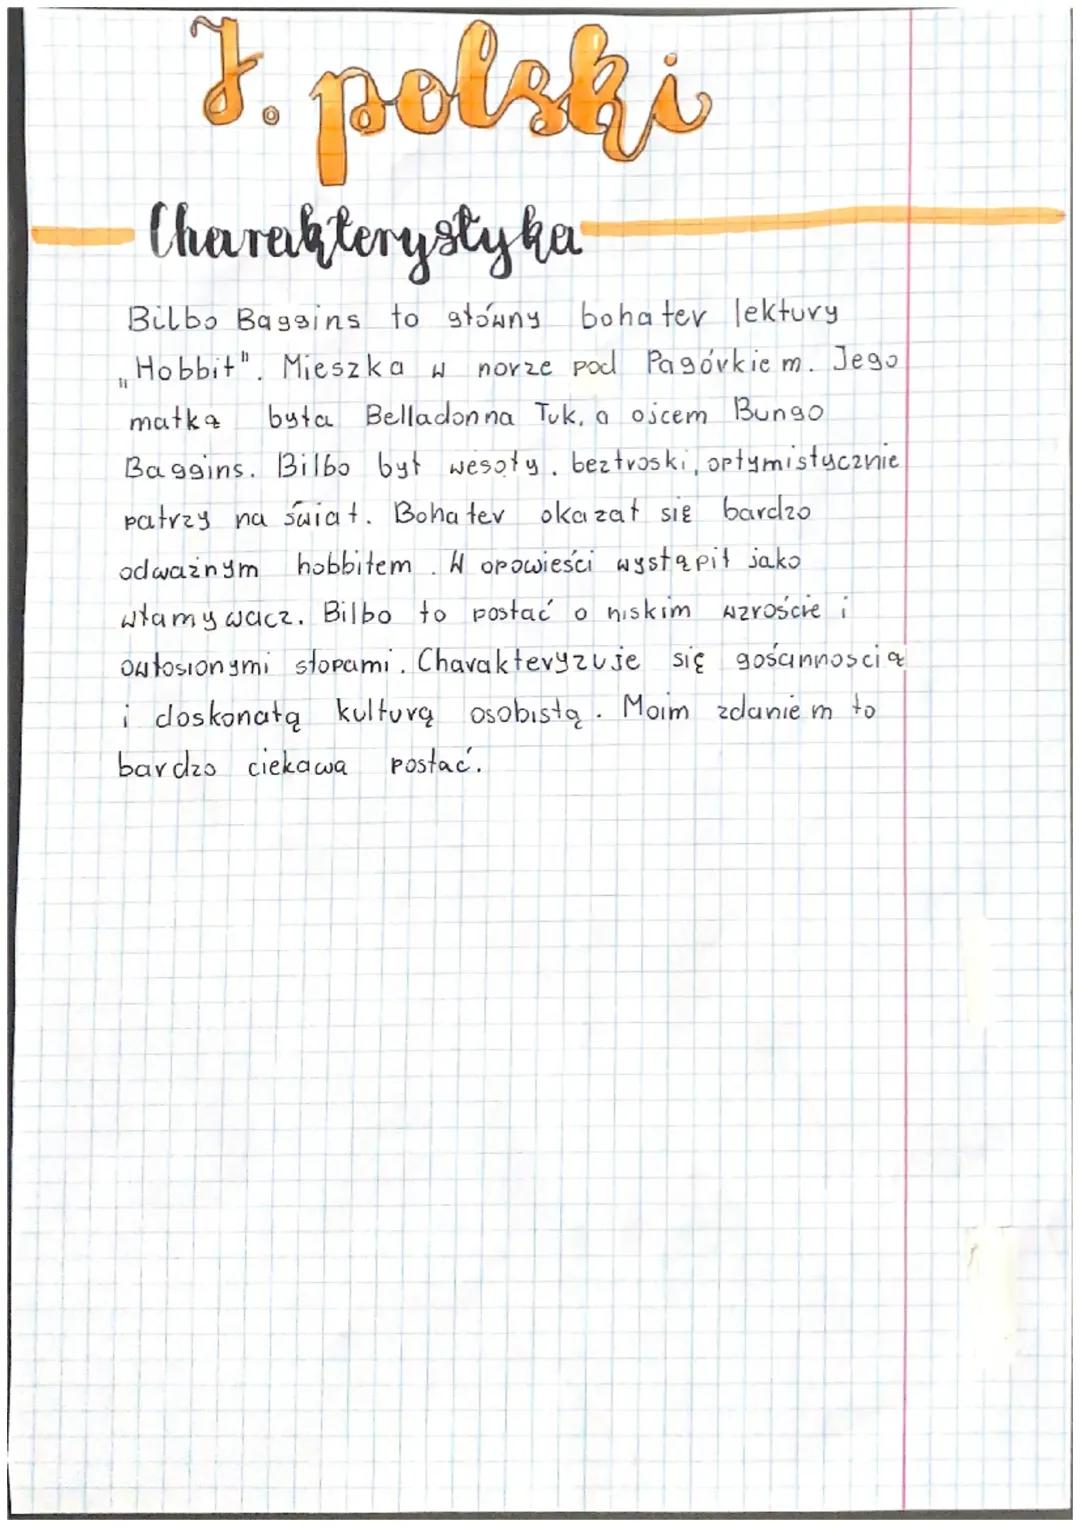 J. polski
Charakterystyka
Bilbo Baggins to główny bohater lektury
„Hobbit". Mieszka w norze pod Pagórkiem. Jego
matką była Belladonna Tuk, a ojcem Bungo
Baggins. Bilbo był wesoły, beztroski, optymistycznie
patrzy na świat. Bohater okazał się bardzo
odważnym hobbitem. W opowieści wystąpił jako
włamywacz. Bilbo to postać o niskim wzroście i
owłosionymi stopami. Charakteryzuje się gościnnoscią
i doskonałą kulturą osobistą. Moim zdaniem to
bardzo ciekawa postać.